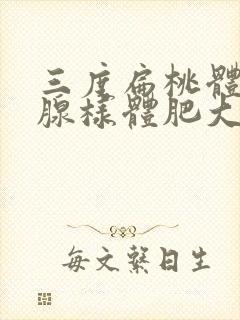 三度扁桃體
腺樣體肥大
每文繫日生